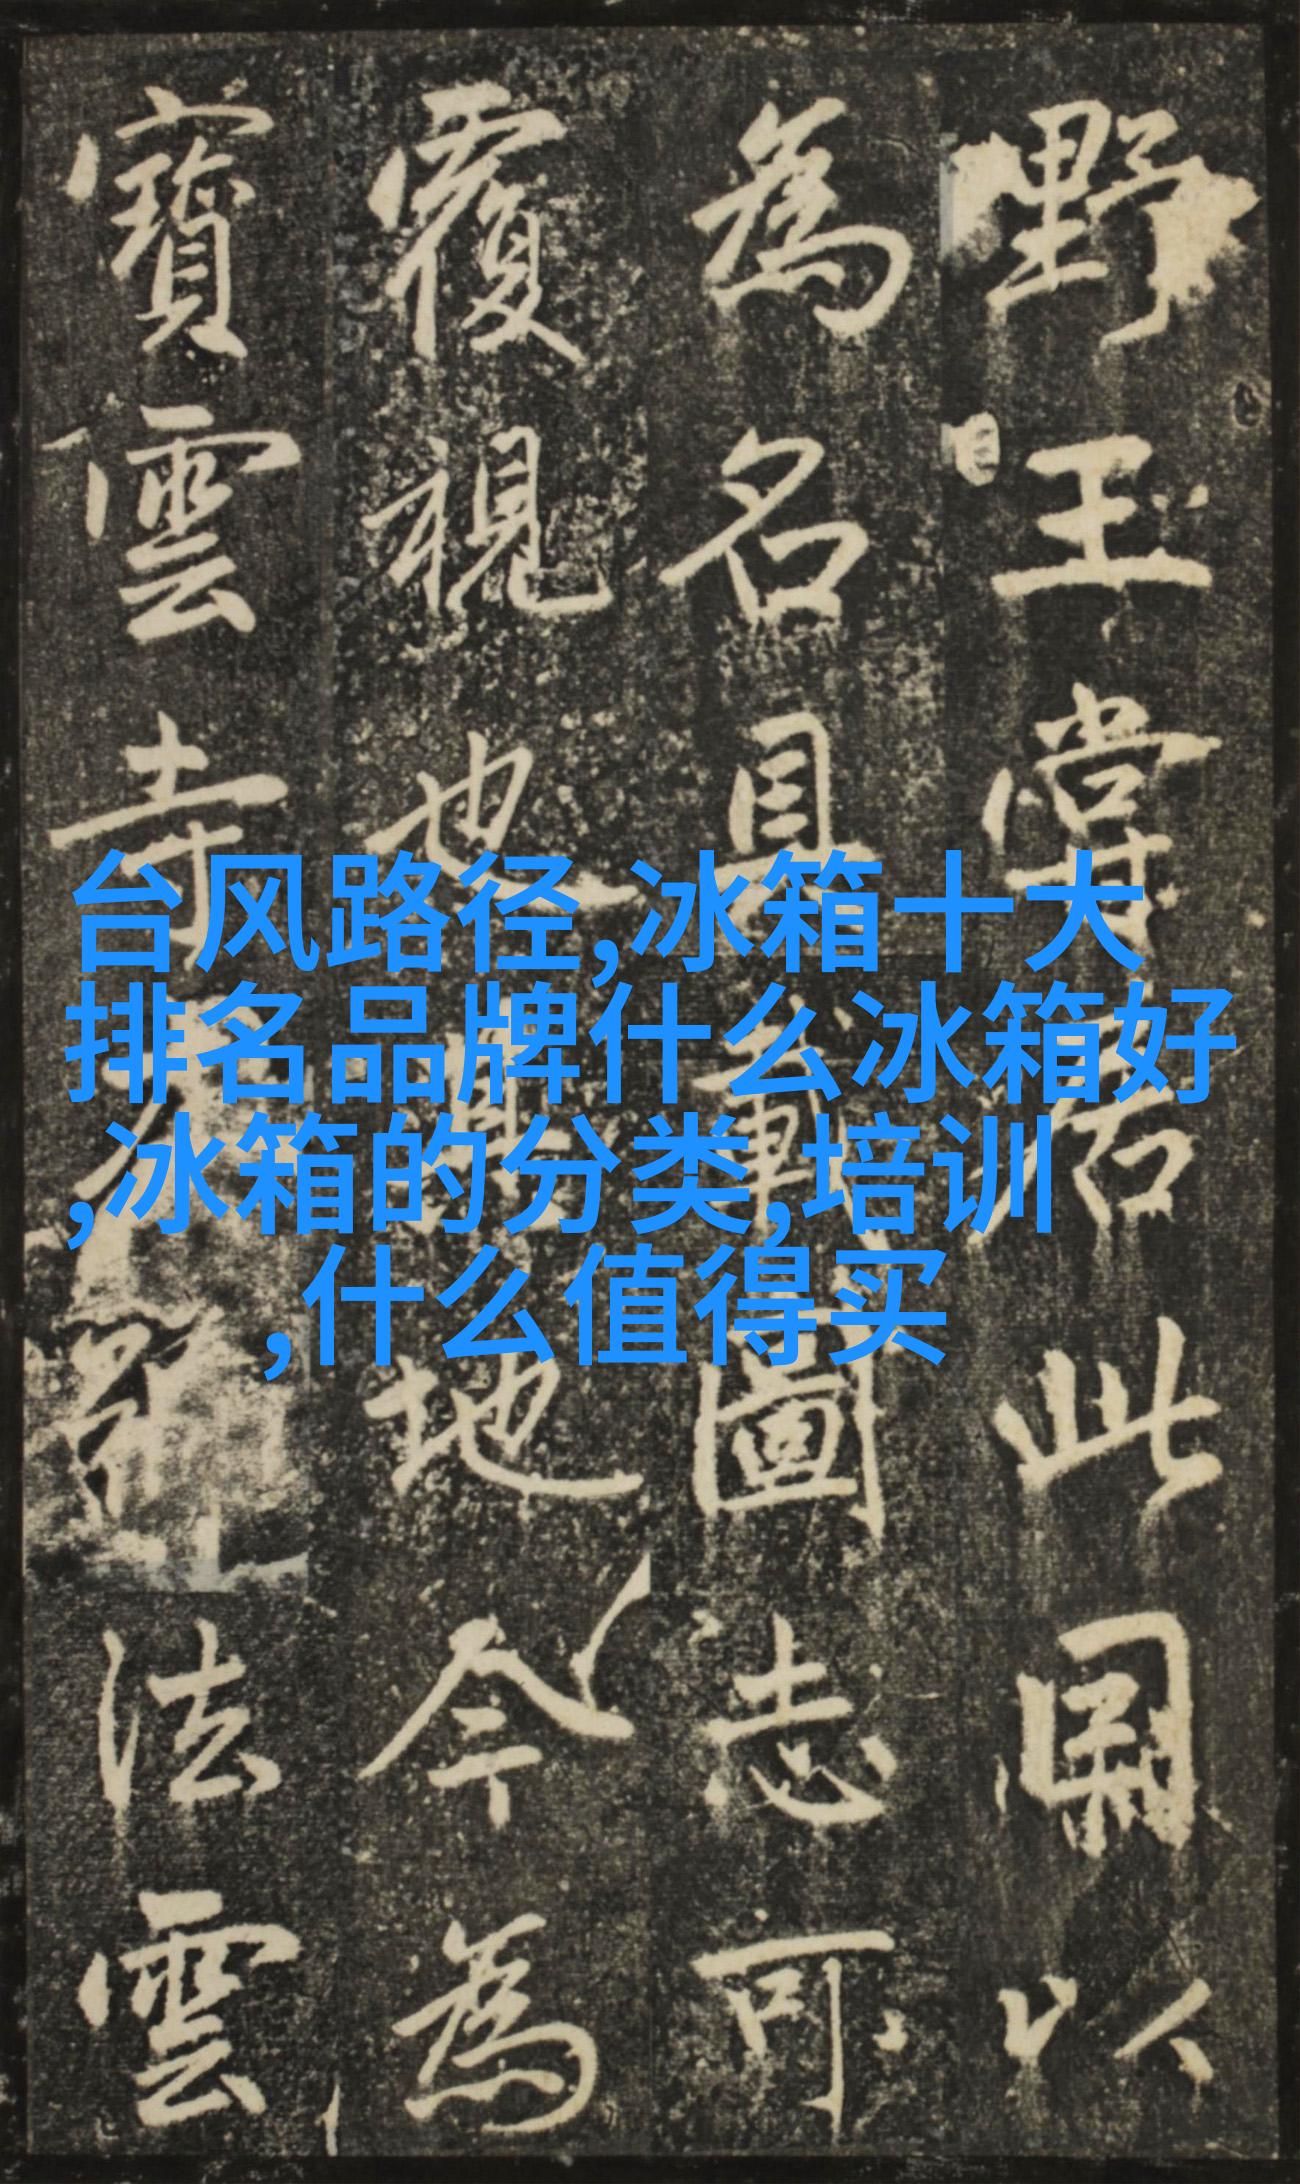 野王嘗居此以
為名具載圖志可
覆視也其地今為
寶雲寺法雲
台风路径,冰箱十大
排名品牌什么冰箱好
,冰箱的分类,培训
,什么值得买